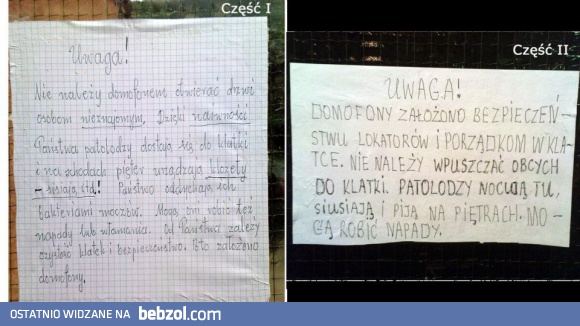 Część I
Uwaga!
Nie należy domofonem otwierać drzwi
osobom nieznajomym. Dzięki naiwności
Państwa patolodzy dostają się do klatki
i na schodach pięter urządzają klozety
- sikają itd! Państwo oddychają ich
bakteriami moczów. Mogą oni robić też
napady lub włamania. Od Państwa zależy
czystość klatek i bezpieczeństwo. Po to założono
domofony.
Część II
UWAGA!
DOMOFONY ZAŁOŻONO BEZPIECZEŃ-
STWU LOKATORÓW I PORZĄDKOM W KLA-
TCE. NIE NALEŻY WPUSZCZAĆ OBCYCH
DO KLATKI. PATOLODZY NOCUJĄ TU,
SIUSIAJĄ I PIJĄ NA PIĘTRACH. MO-
GĄ ROBIĆ NAPADY.
OSTATNIO WIDZANE NA bebzol.com